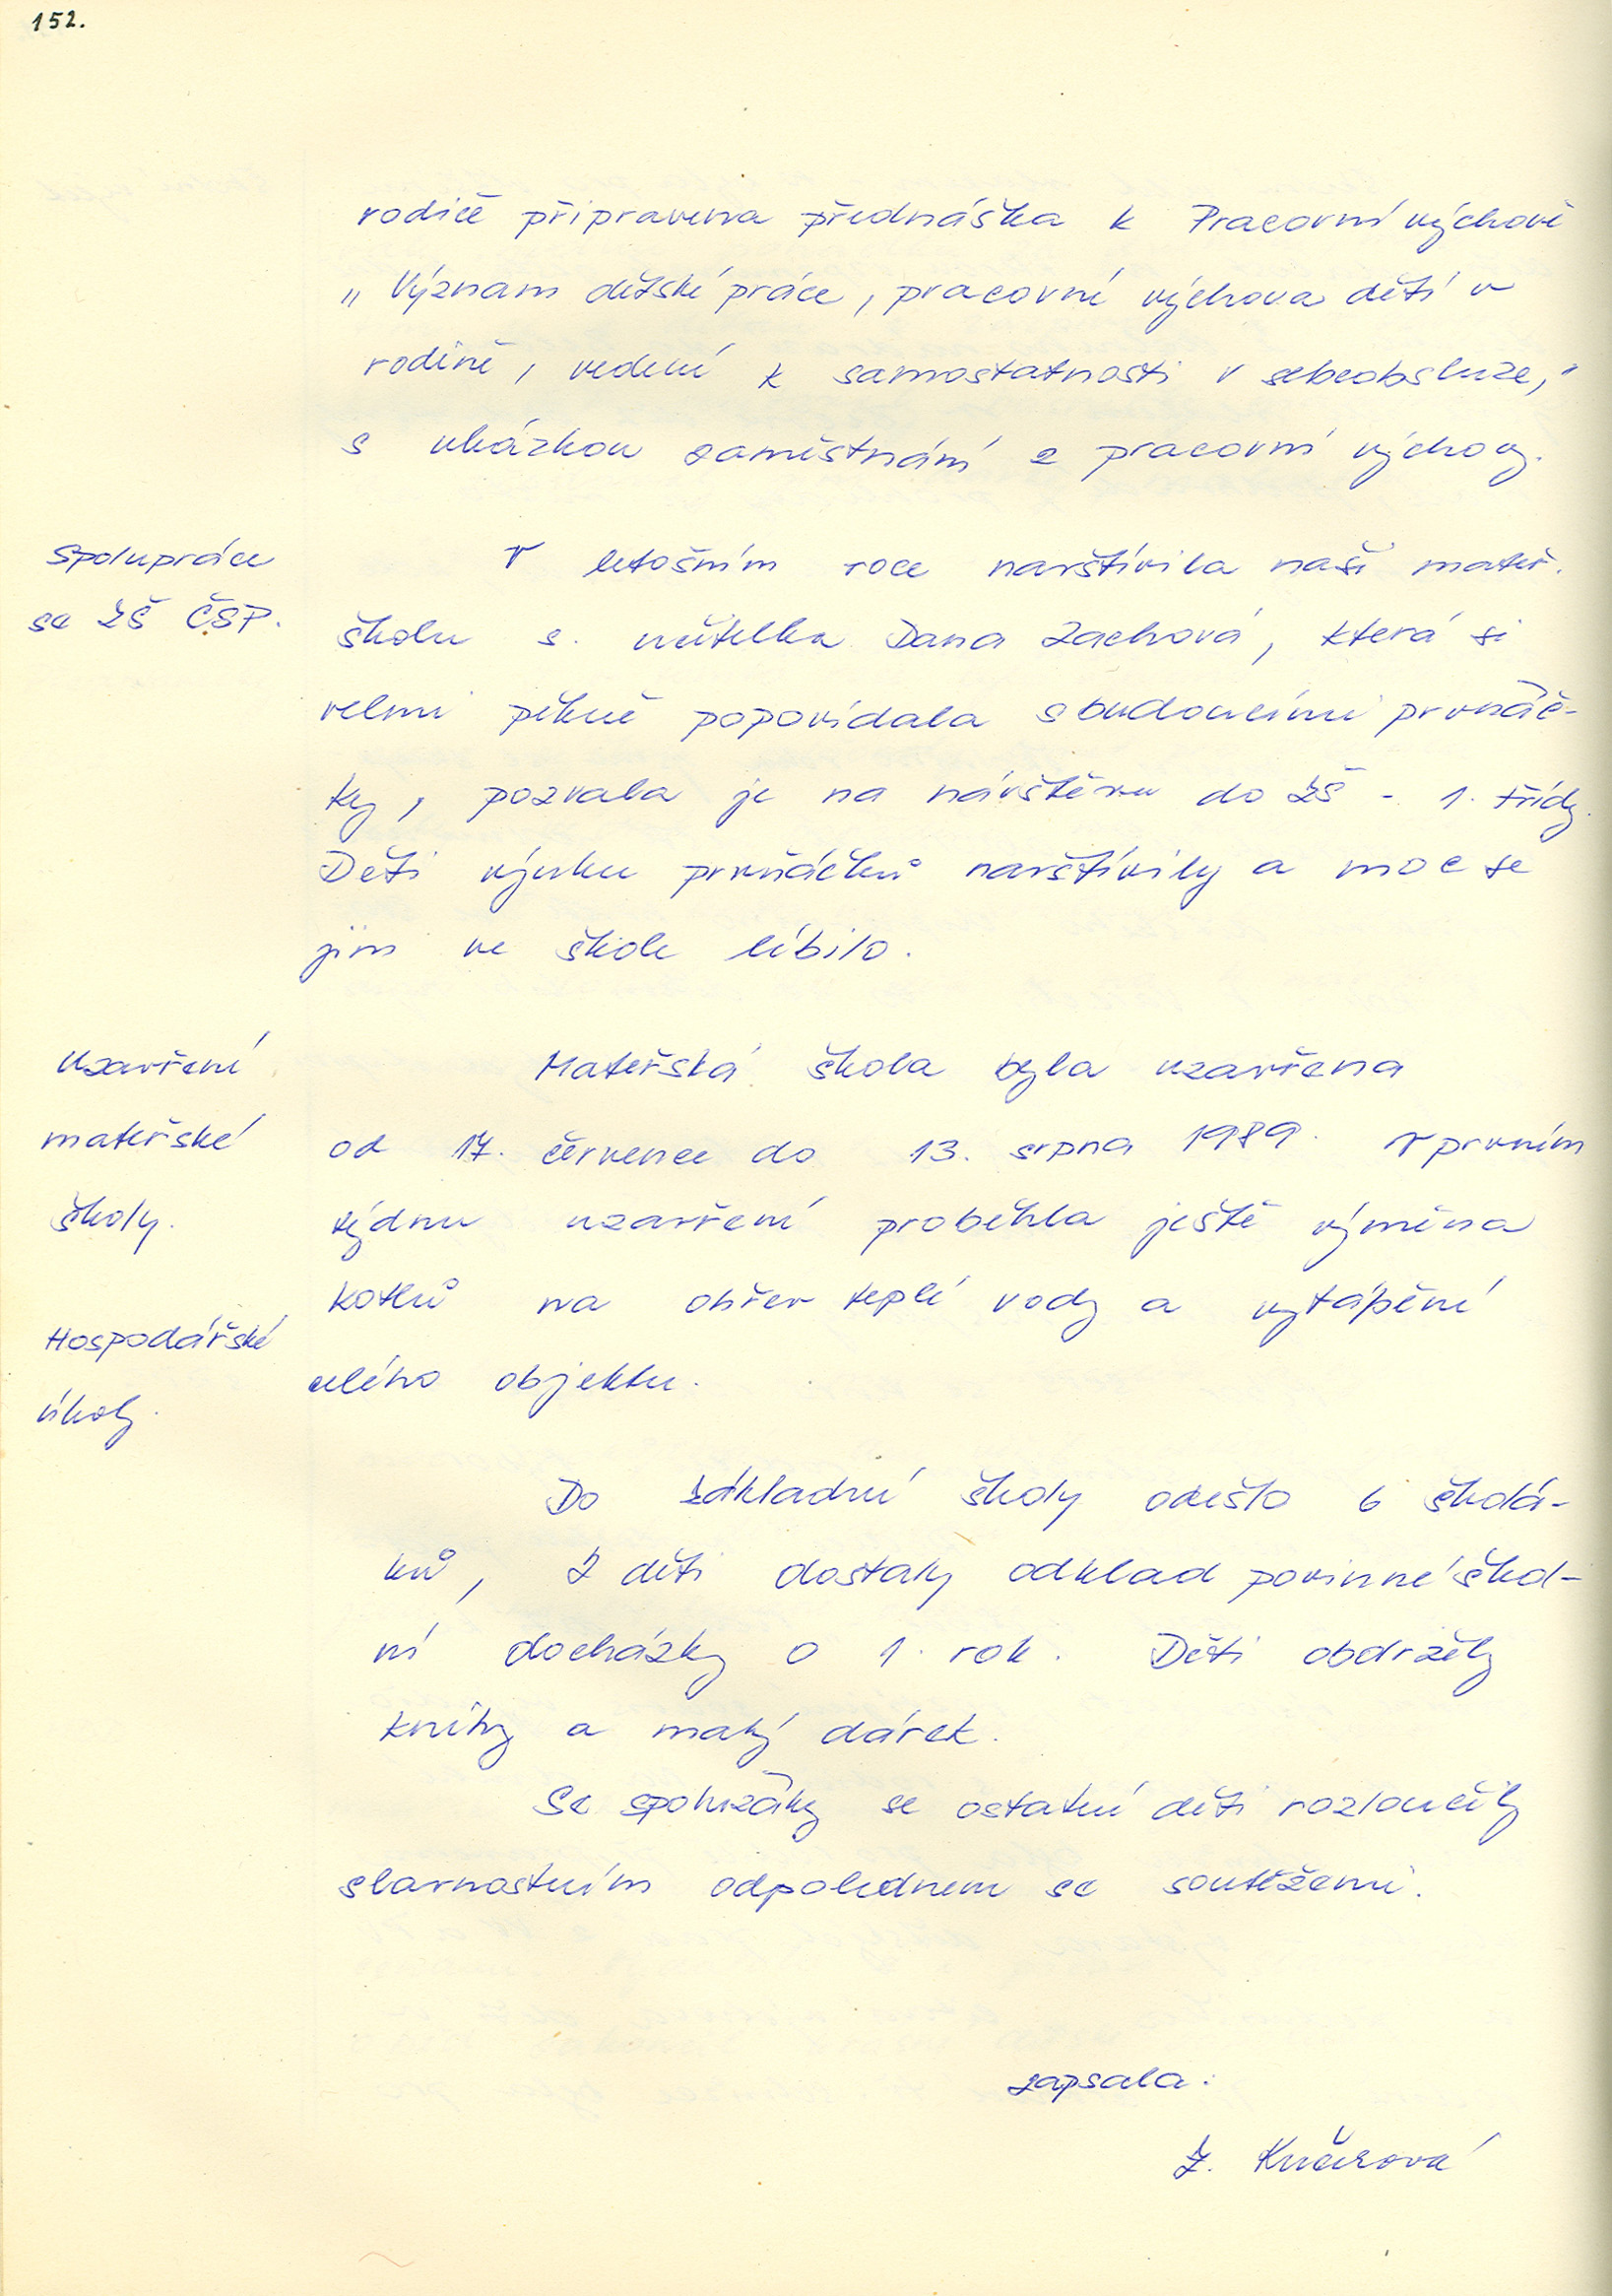 152.
rodiče připravena přednáška k Pracovní výchově
„Význam dětské práce, pracovní výchova dětí v
rodině, vedení k samostatnosti v sebeobsluze,"
s ukázkou zaměstnání z pracovní výchovy.
Spolupráce
se ZŠ ČSP.
V letošním roce navštívila naši mateř.
školu s. učitelka Dana Zachová, která si
velmi pěkně popovídala s budoucími prvňáč-
ky, pozvala je na návštěvu do ZŠ - 1. třídy.
Děti výuku prvňáčků navštívily a moc se
jim ve škole líbilo.
Uzavření
mateřské
školy.
Mateřská škola byla uzavřena
od 17. července do 13. srpna 1989. V prvním
týdnu uzavření proběhla ještě výměna
kotlů na ohřev teplé vody a vytápění
celého objektu.
Hospodářské
úkoly.
Do základní školy odešlo 6 školá-
ků, 2 děti dostaly odklad povinné škol-
ní docházky o 1. rok. Děti obdržely
knihy a malý dárek.
Se spolužáky se ostatní děti rozloučily
slavnostním odpolednem se soutěžemi.
zapsala:
Kučerová